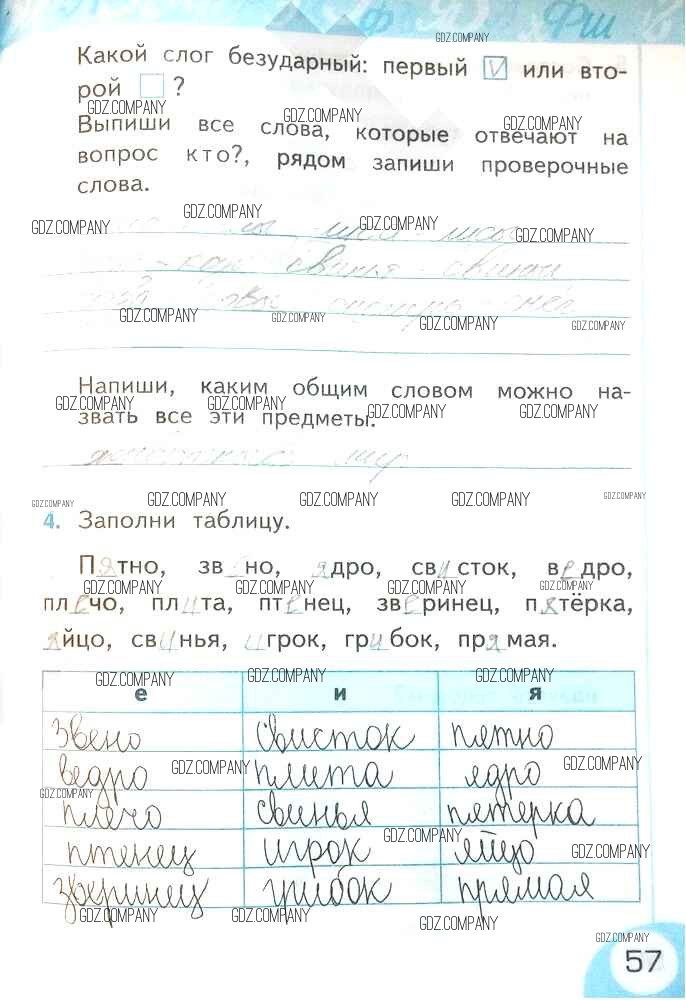 Какой слог безударный: первый V или вто-
рой ?
Выпиши все слова, которые отвечают на
вопрос кто?, рядом запиши проверочные
слова.
свинья - свиньи
Напиши, каким общим словом можно на-
звать все эти предметы.
мир
4. Заполни таблицу.
Пятно, звено, ядро, свисток, ведро,
плечо, плита, птенец, зверинец, пятёрка,
яйцо, свинья, игрок, грибок, прямая.
е и я
звено свисток пятно
ведро плита ядро
плечо свинья пятерка
птенец игрок яйцо
зверинец грибок прямая
GDZ.COMPANY
57